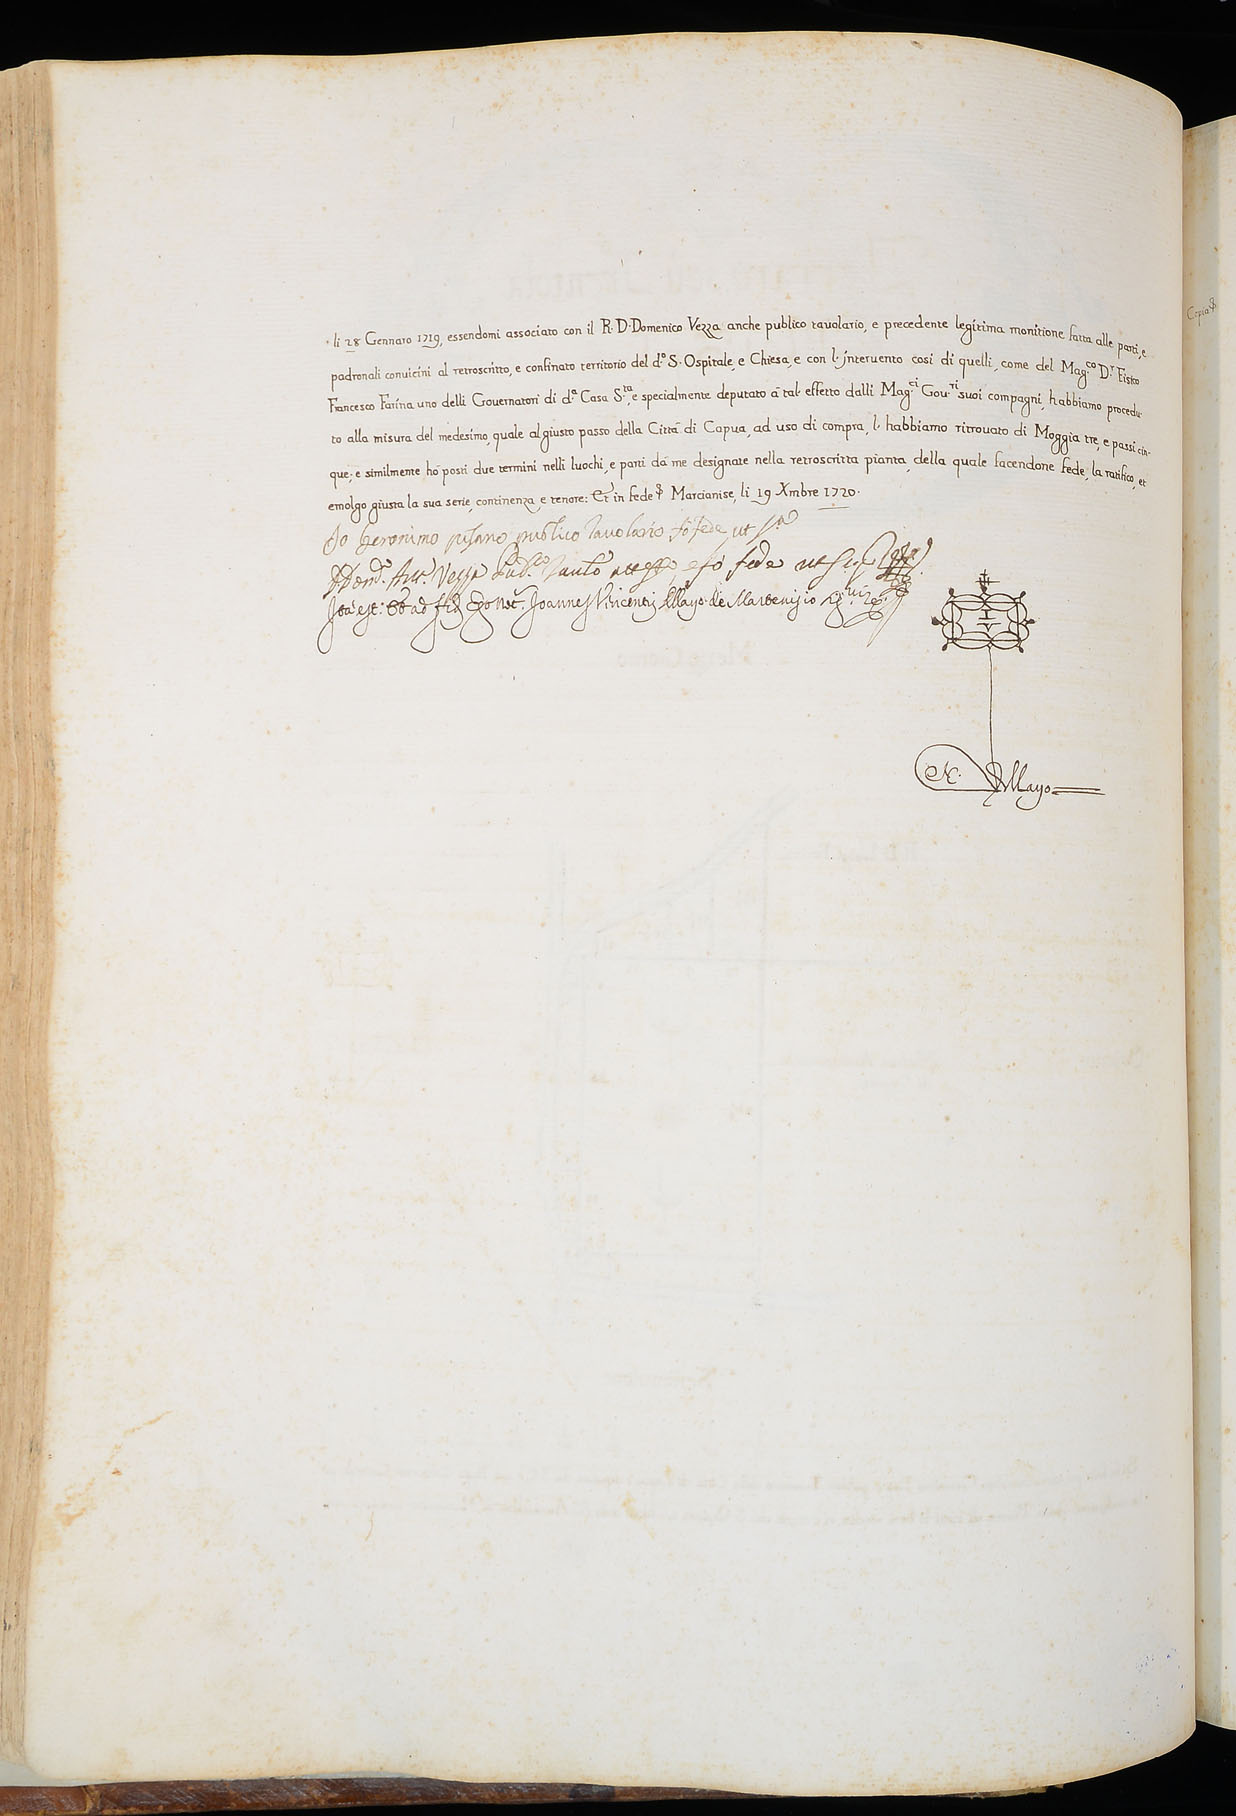 li 28 Gennaro 1719, essendomi associato con il R. D. Domenico Vezza anche publico tavolario, e precedente legitima monitione fatta alle parti, e
padronali conuicini al retroscritto, e confinato territorio del d.º S. Ospitale, e Chiesa, e con l'interuento cosi di quelli, come del Mag.co D.r Fisico
Francesco Farina uno delli Gouernatori di d.ª Casa S.ta, e specialmente deputato à tal' effetto dalli Mag.ci Gou.ri suoi compagni, habbiamo procedu-
to alla misura del medesimo, quale al giusto passo della Città di Capua, ad uso di compra, l' habbiamo ritrouato di Moggia tre, e passi cin-
que; e similmente hò posti due termini nelli luochi, e parti dà me designate nella retroscritta pianta, della quale facendone fede, la ratifico, et
emolgo giusta la sua serie, continenza, e tenore: Et in fede Marcianise, li 19 Xmbre 1720.
Io Geronimo pisano publico Tavolario fò fede ut s.ª
Vezza Pub.co fò fede ut
Ita est: et ad fidem Not.s Joannes Vincentius Mayo de Martenisio
Copia
IV
N. Mayo